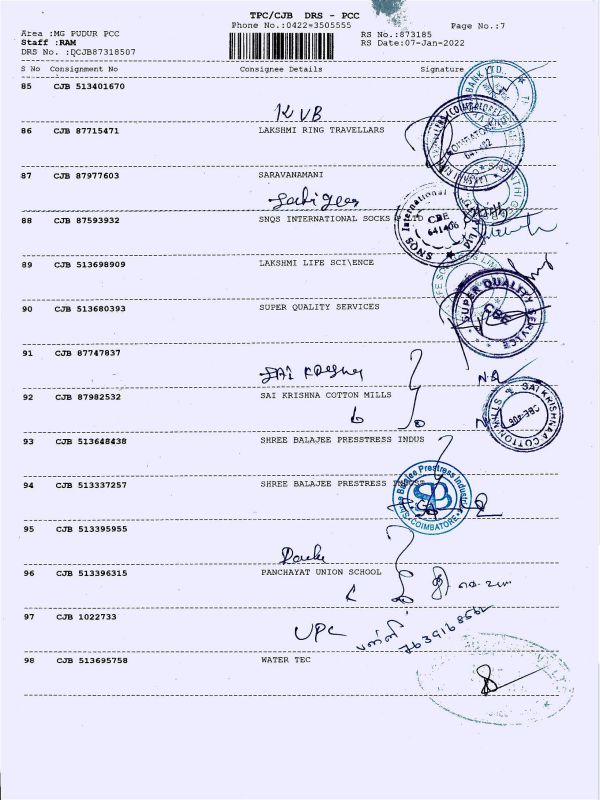 TPC/CJB DRS - PCC
Phone No.:0422-3505555
Page No.:7
Area :MG PUDUR PCC
RS No.:873185
Staff :RAM
RS Date:07-Jan-2022
DRS No. :DCJB87318507
S No Consignment No Consignee Details Signature
85 CJB 513401670
KVB
86 CJB 87715471 LAKSHMI RING TRAVELLARS
87 CJB 87977603 SARAVANAMANI
88 CJB 87593932 SNQS INTERNATIONAL SOCKS P LTD
SNQS International
CBE
641406
89 CJB 513698909 LAKSHMI LIFE SCI\ENCE
90 CJB 513680393 SUPER QUALITY SERVICES
SUPER QUALITY SERVICE
CBE
91 CJB 87747837
92 CJB 87982532 SAI KRISHNA COTTON MILLS
SAI KRISHNA COTTON MILLS
CBE-406
93 CJB 513648438 SHREE BALAJEE PRESSTRESS INDUS
94 CJB 513337257 SHREE BALAJEE PRESTRESS INDUST
Shree Balajee Prestress Industries
SB
COIMBATORE
95 CJB 513395955
96 CJB 513396315 PANCHAYAT UNION SCHOOL
97 CJB 1022733
UPC
7639168562
98 CJB 513695758 WATER TEC